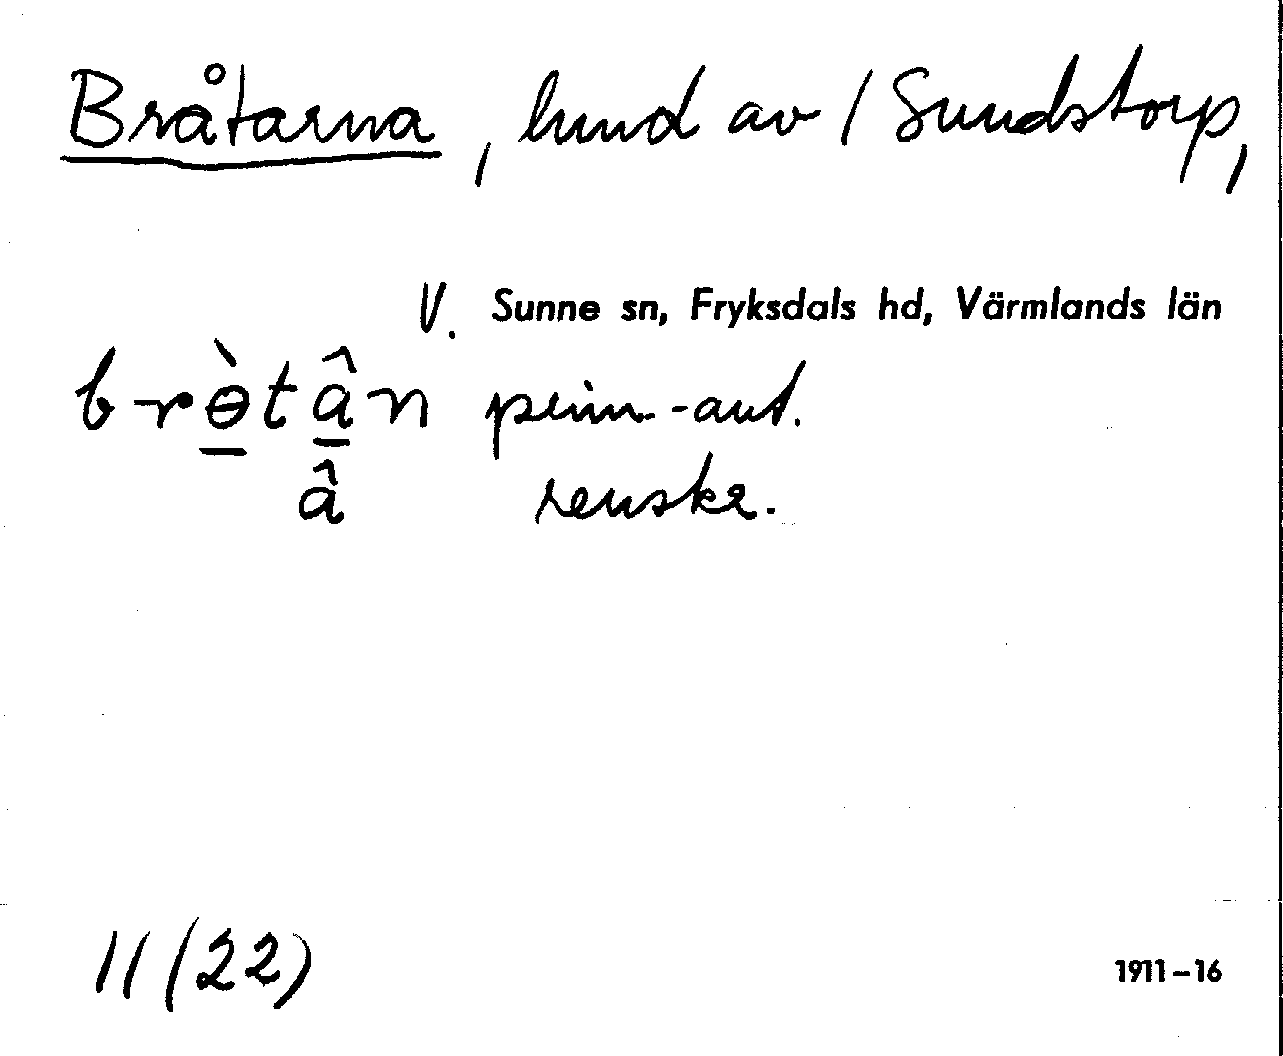 Bråtarna, lund av / Sundstorp,
V. Sunne sn, Fryksdals hd, Värmlands län
brɵ̀tân prim.-ant.
â renskr.
11 (22)
1911–16